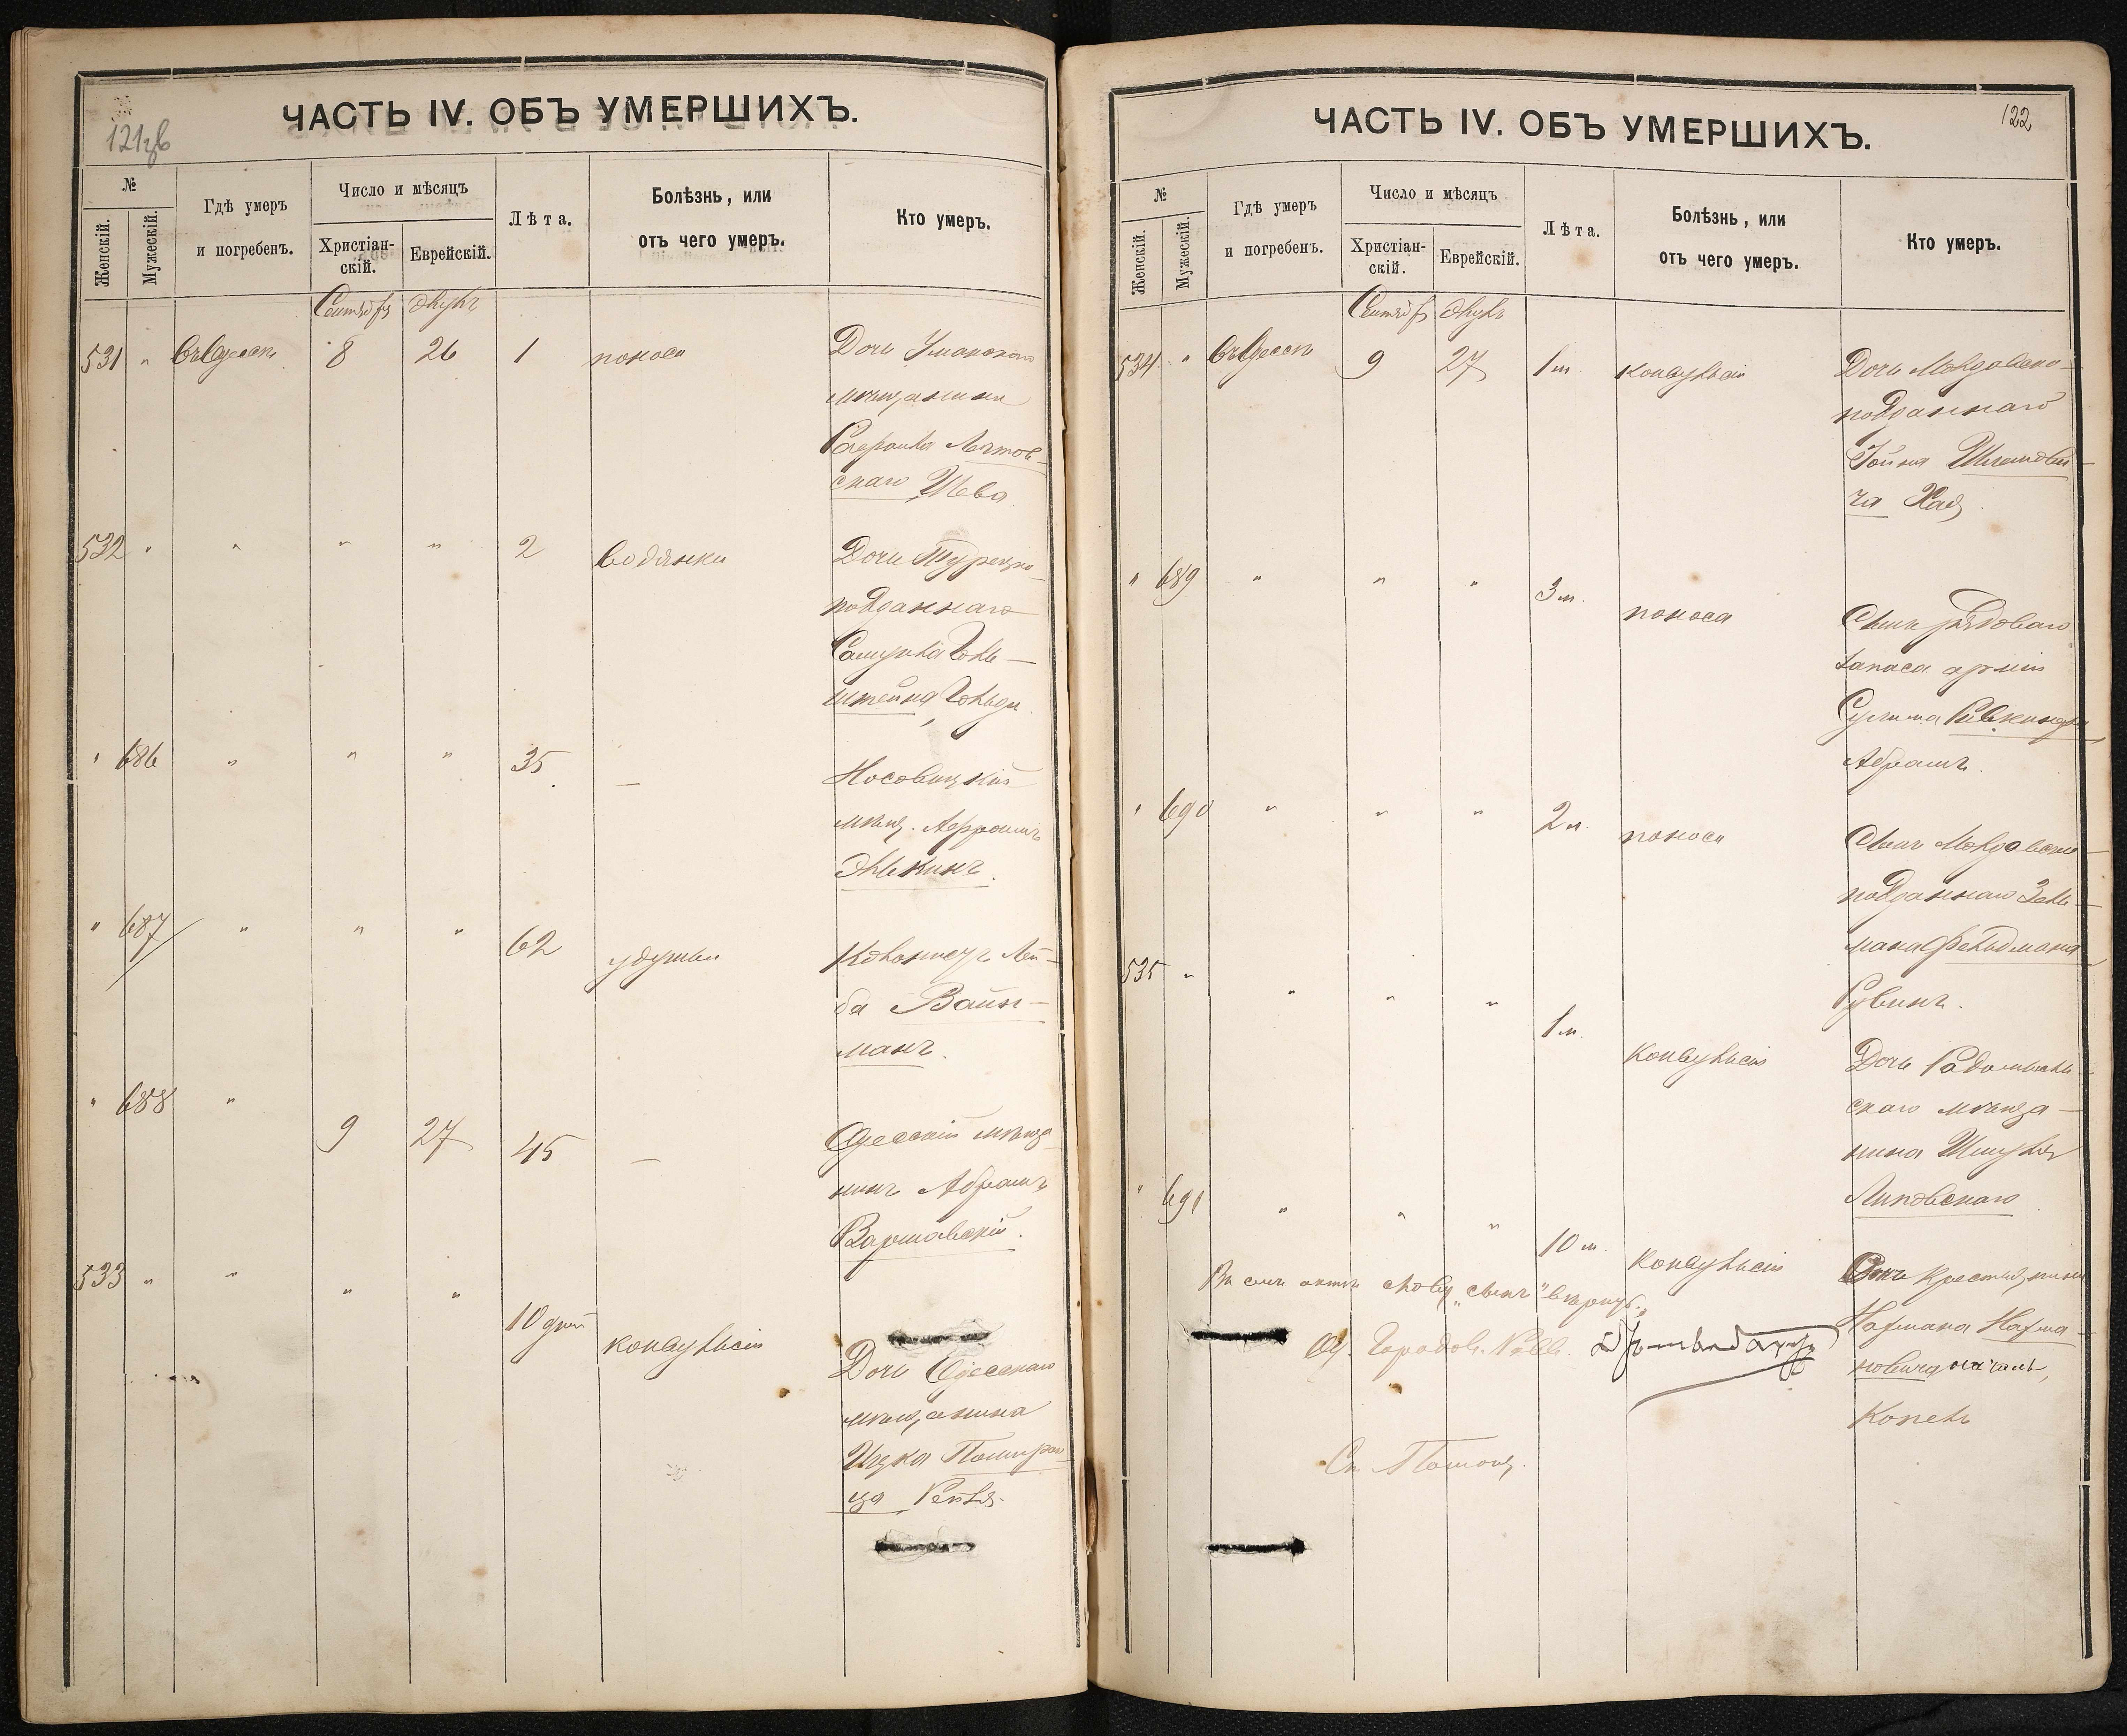 ЧАСТЬ IV. ОБЪ УМЕРШИХЪ.
№
Женскій.
Мужескій.
Гдѣ умеръ
и погребенъ.
Число и мѣсяцъ
Христіан-
скій.
Еврейскій.
Лѣта.
Болѣзнь, или
отъ чего умеръ.
Кто умеръ.
Сентябр Элулъ
531 " Въ Одессѣ 8 26 1 поноса Дочь Уманского
мѣщанина
Літов-
скаго Шева
532 " " " " 2 водянки Дочь Турецко-
подданнаго
Голь-
штейна Гольда.
" 686 " " " 35 — Носовицкій
мѣщ. Афроимъ
Элькинъ.
" 687 " " " 62 удушья Колонистъ Лей-
ба Вайн-
манъ.
" 688 " 9 27 45 — Одесскій мѣща
нинъ Абрамъ
Варшавскій.
533 " " " " 10 дней конвульсіи
Дочь Одесскаго
мѣщанина
Ицка Помиран-
ца Рейзя.
ЧАСТЬ IV. ОБЪ УМЕРШИХЪ.
122
№
Женскій.
Мужескій.
Гдѣ умеръ
и погребенъ.
Число и мѣсяцъ
Христіан-
скій.
Еврейскій.
Лѣта.
Болѣзнь, или
отъ чего умеръ.
Кто умеръ.
Сентябр Элулъ
534 " Въ Одессѣ 9 27 1 м. конвульсіи Дочь Молдавско-
подданнаго
Шлемови-
ча Хая
" 689 " " " 3 м. поноса Сынъ рядоваго
запаса арміи
Сулима Ривкинда
Абрамъ.
" 690 " " " 2 м. поноса Сынъ Молдавско-
подданнаго Зель-
мана Фельдмана
Рувинъ.
535 " " " " 1 м. конвульсіи Дочь Радомысль-
скаго мѣща-
нина Шмуля
Липовскаго
" 691 " " " 10 м. конвульсіи Сынъ крестьянина
Нахмана Нахма-
новича
Копель
Въ семъ актѣ слову „сынъ" вѣрить.
Городов. Равв.
См. Помощ.